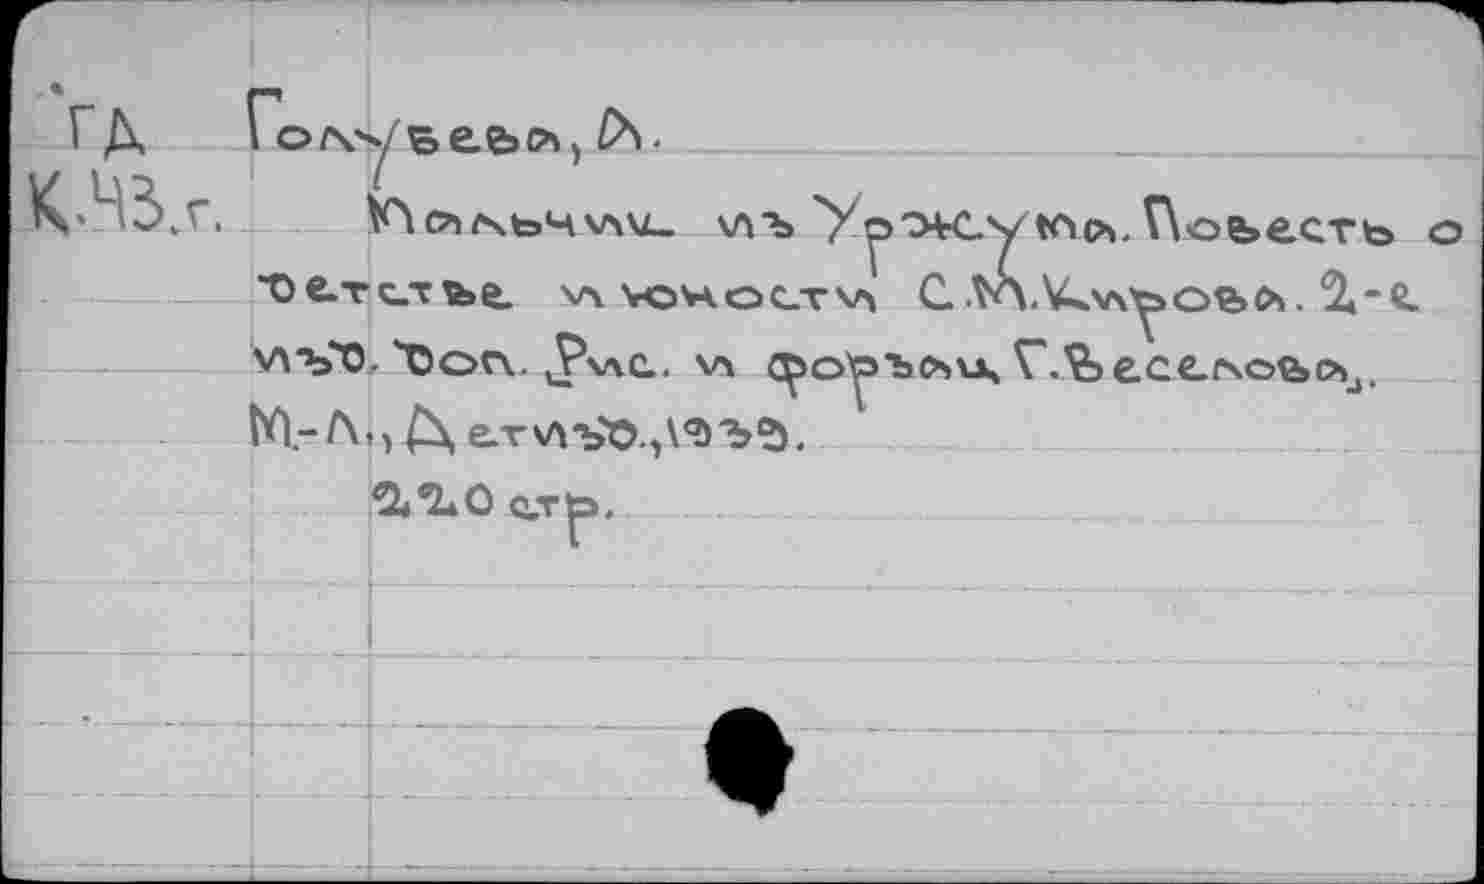 ГД Голубева, А.
К.ЧЗ.г. Мальчик из Уржума. Повесть о
детстве и юности С.М.Кирова. 2-е
изд. доп. Рис. и форзац Г.Веселова.
М.-Л., Детизд., 1939.
220 стр.